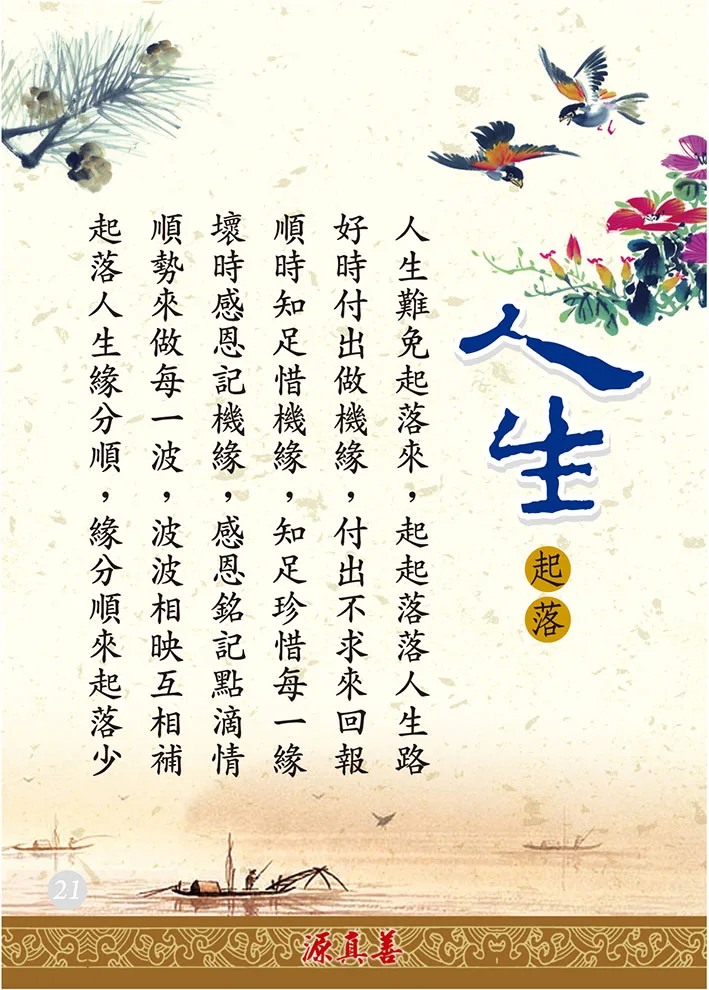 人生
起落
人生難免起落來，起起落落人生路
好時付出做機緣，付出不求來回報
順時知足惜機緣，知足珍惜每一緣
壞時感恩記機緣，感恩銘記點滴情
順勢來做每一波，波波相映互相補
起落人生緣分順，緣分順來起落少
21
源真善